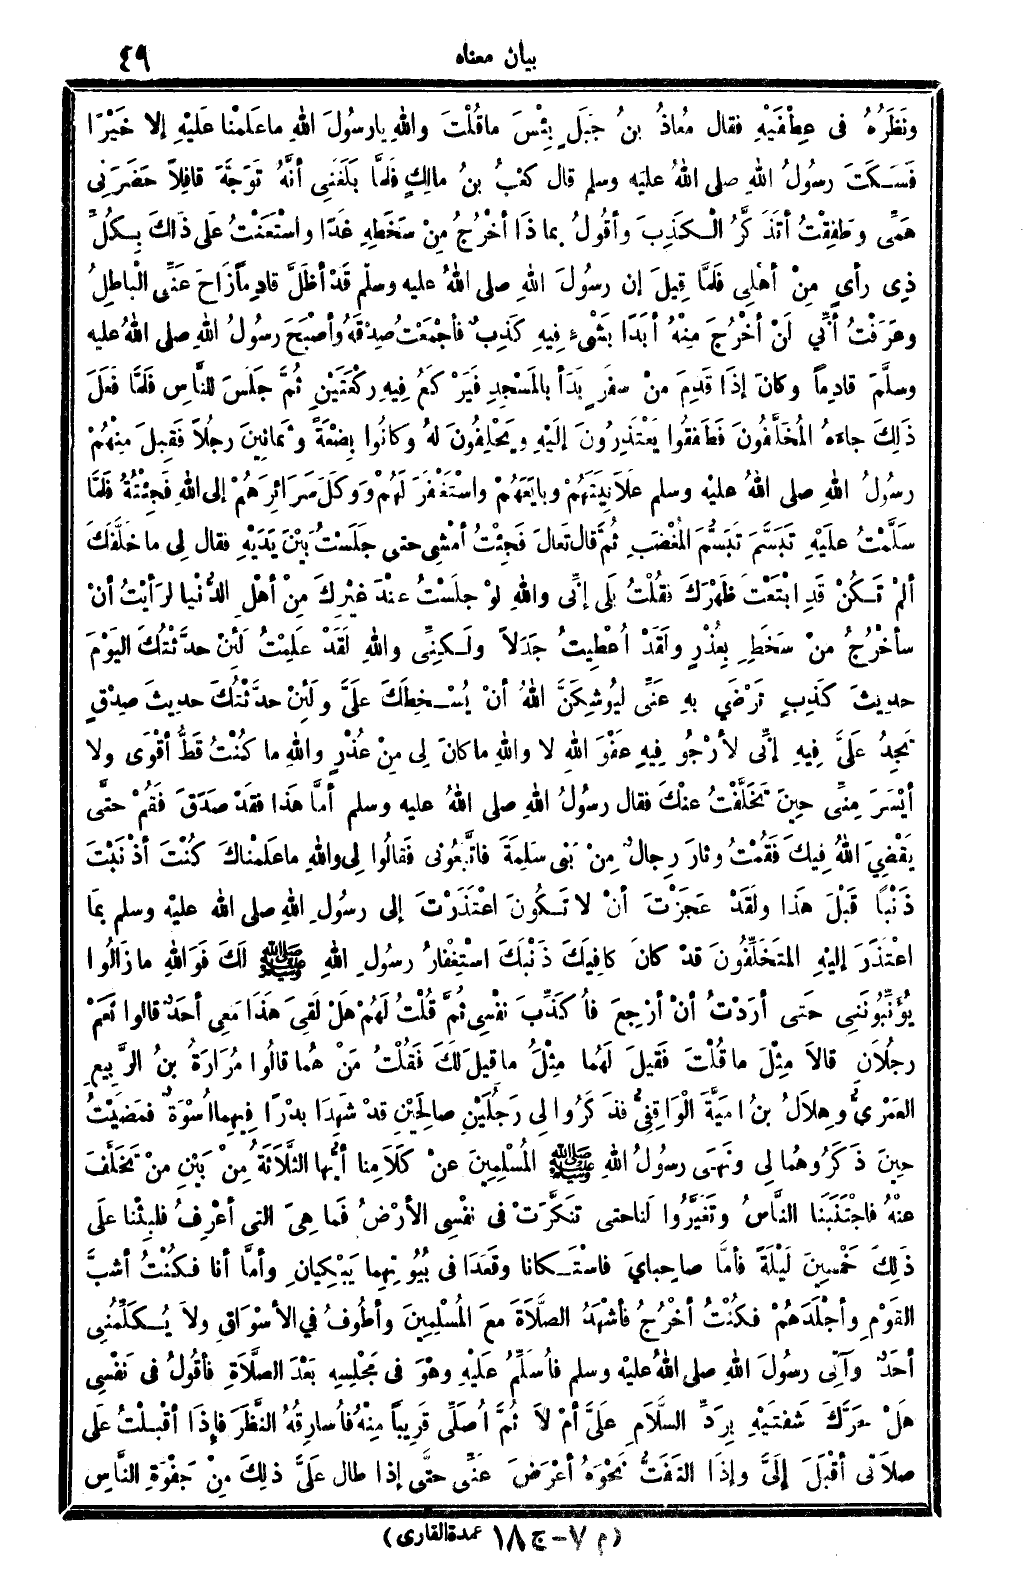 بيان معناه ٤٩
ونَظَرُهُ فى عِطْفَيْهِ فقال مُعاذُ بنُ جَبَلٍ بِئْسَ ماقُلْتَ واللهِ يارسُولَ اللهِ ماعَلِمْنا عَلَيْهِ إلا خَيْرًا
فَسَكَتَ رسولُ اللهِ صلى اللهُ عليه وسلم قال كعْبُ بنُ مالِكٍ فلَمَّا بَلَغَنِي أنَّهُ تَوَجَّهَ قافِلاً حَضَرَنِي
هَمِّى وطَفِقْتُ أتَذَكَّرُ الْكَذِبَ وأقُولُ بماذَا أخْرُجُ مِنْ سَخَطِهِ غَدًا واسْتَعَنْتُ علَى ذٰلكَ بِكُلِّ
ذِى رأىٍ مِنْ أهْلِى فَلمَّا قِيلَ إن رسُولَ اللهِ صلى اللهُ عليه وسلّم قَدْ أظَلَّ قادِماً زَاحَ عَنِّى الْباطِلُ
وعَرَفْتُ أنِّي لَنْ أخْرُجَ مِنْهُ أبَدًا بَشْىءٍ فِيهِ كَذِبٌ فأجْمَعْتُ صِدْقَهُ وأصْبَحَ رسولُ اللهِ صلى اللهُ عليه
وسلَّمَ قادِماً وكانَ إذَا قَدِمَ منْ سفَرٍ بَدَأ بالمَسْجِدِ فَيَرْكَعُ فِيهِ رَكْعَتَيْنِ ثُمَّ جلَسَ للنَّاسِ فَلمَّا فعَلَ
ذَلِكَ جاءَهُ المُخَلَّفُونَ فَطَفِقُوا يَعْتَذِرُونَ إلَيْهِ ويَحْلِفُونَ لهُ وكانُوا بِضْعَةً وثمانِينَ رجُلاً فَقَبلَ مِنْهُمْ
رسُولُ اللهِ صلى اللهُ عليْه وسلم علاَنِيَتَهُمْ وبايَعَهُمْ واسْتَغْفَرَ لَهُمْ ووكَلَ سَرَائِرَهُمْ إلى اللهِ فَجِئْتُهُ فَلمَّا
سَلَّمْتُ علَيْهِ تَبَسَّمَ تَبَسُّمَ المُغْضَبِ ثُمَّ قال تَعالَ فَجِئْتُ أمْشِى حتى جلَسْتُ بَيْنَ يَدَيْهِ فقال لِى ما خلَّفَكَ
ألَمْ تَكُنْ قَدِ ابْتَعْتَ ظَهْرَكَ فقُلْتُ بَلَى إنِّى واللهِ لوْ جلَسْتُ عِنْدَ غيْرِكَ مِنْ أهْلِ الدُّنْيا لرَأيْتُ أنْ
سأخْرُجُ منْ سَخَطِهِ بِعُذْرٍ ولَقَدْ أُعْطِيتُ جَدَلاً ولَكِنِّى واللهِ لَقَدْ عَلِمْتُ لَئِنْ حدَّثْتُكَ اليَوْمَ
حدِيثَ كَذِبٍ تَرْضَي بِهِ عَنِّى لَيُوشِكَنَّ اللهُ أنْ يُسْخِطَكَ علَيَّ ولَئِنْ حدَّثْتُكَ حدِيثَ صِدْقٍ
تَجِدُ عَلَىَّ فِيهِ إنِّى لأرْجُو فِيهِ عفْوَ اللهِ لا واللهِ ماكانَ لِى مِنْ عُذْرٍ واللهِ ما كُنْتُ قَطُّ أقْوَى ولا
أيْسَرَ مِنِّى حِينَ تَخَلَّفْتُ عنْكَ فقال رسُولُ اللهِ صلى اللهُ عليه وسلم أمَّا هَذا فقَدْ صَدَقَ فَقُمْ حتَّى
يَقْضِيَ اللهُ فِيكَ فَقُمْتُ وثارَ رِجالٌ مِنْ بَنى سَلِمَةَ فاتَّبَعُونى فَقالُوا لِى واللهِ ماعَلمْناكَ كُنْتَ أذْنَبْتَ
ذَنْباً قَبْلَ هَذا ولَقَدْ عجَزْتَ أنْ لا تَكُونَ اعْتَذَرْتَ إلى رسُولِ اللهِ صلى الله عليْه وسلم بِمَا
اعْتذَرَ إليْهِ المُتَخَلِّفُونَ قدْ كانَ كافِيَكَ ذَنْبَكَ اسْتِغْفارُ رسُولِ اللهِ ﷺ لَكَ فَوَاللهِ مازَالُوا
يُؤَنِّبُونَنى حَتى أرَدْتُ أنْ أرْجِعَ فأُكَذِّبَ نفْسِى ثُمَّ قُلْتُ لَهُمْ هَلْ لَقِىَ هَذَا مَعِى أحَدٌ قالوا نَعَمْ
رجُلاَنِ قالاَ مِثْلَ ماقُلْتَ فَقِيلَ لَهُما مِثْلُ ماقيلَ لَكَ فَقُلْتُ مَنْ هُما قالُوا مُرَارَةُ بنُ الرَّبِيعِ
العَمْرِيُّ وهِلاَلُ بنُ امَيَّةَ الْوَاقِفِىُّ فذَكَرُوا لِى رَجُلَيْنِ صالِحَيْنِ قدْ شهِدَا بدْرًا فِيهِما اُسْوَةٌ فمَضَيْتُ
حِينَ ذَكَرُوهُما لِى ونَهَى رسولُ اللهِ ﷺ المُسْلِمِينَ عنْ كَلاَمِنا أيُّها الثَّلاَثَةُ مِنْ بَيْنِ مِنْ تَخَلَّفَ
عنْهُ فاجْتَنَبَنا النَّاسُ وتَغَيَّرُوا لَنا حتى تنَكَّرَتْ فى نفْسِى الأرْضُ فَما هِىَ التى أعْرِفُ فلَبِثْنا علَى
ذَلِكَ خَمْسِينَ لَيْلَةً فأمَّا صاحِبايَ فاسْتَكانا وقَعَدَا فى بُيُوتِهِما يَبْكِيانِ وأمَّا أنا فكُنْتُ أشَبَّ
القَوْمِ وأجْلَدَهُمْ فكُنْتُ أخْرُجُ فأشْهَدُ الصَّلاَةَ معَ المُسْلِمِينَ وأطُوفُ في الأسْوَاقِ ولاَ يُكَلِّمُنِى
أحَدٌ وآتِى رسُولَ اللهِ صلى اللهُ عليْه وسلم فأُسَلِّمُ عَلَيْهِ وهْوَ فى مَجْلِسِهِ بَعْدَ الصَّلاَةِ فأقُولُ فى نَفْسِى
هَلْ حَرَّكَ شَفتَيْهِ بِرَدِّ السَّلاَمِ عَلَىَّ أمْ لاَ ثُمَّ اُصَلِّى قَرِيباً مِنْهُ فأُسارِقُهُ النَّظَرَ فإِذَا أقْبَلْتُ علَى
صلاَتى أقْبَلَ إلَىَّ وإذَا التَفَتُّ نَحْوَهُ أعْرَضَ عنِّى حتَّى إذا طال علَىَّ ذلِكَ مِنْ جَفْوَةِ النَّاسِ
(م ٧ – ج ١٨ عمدة القارى)